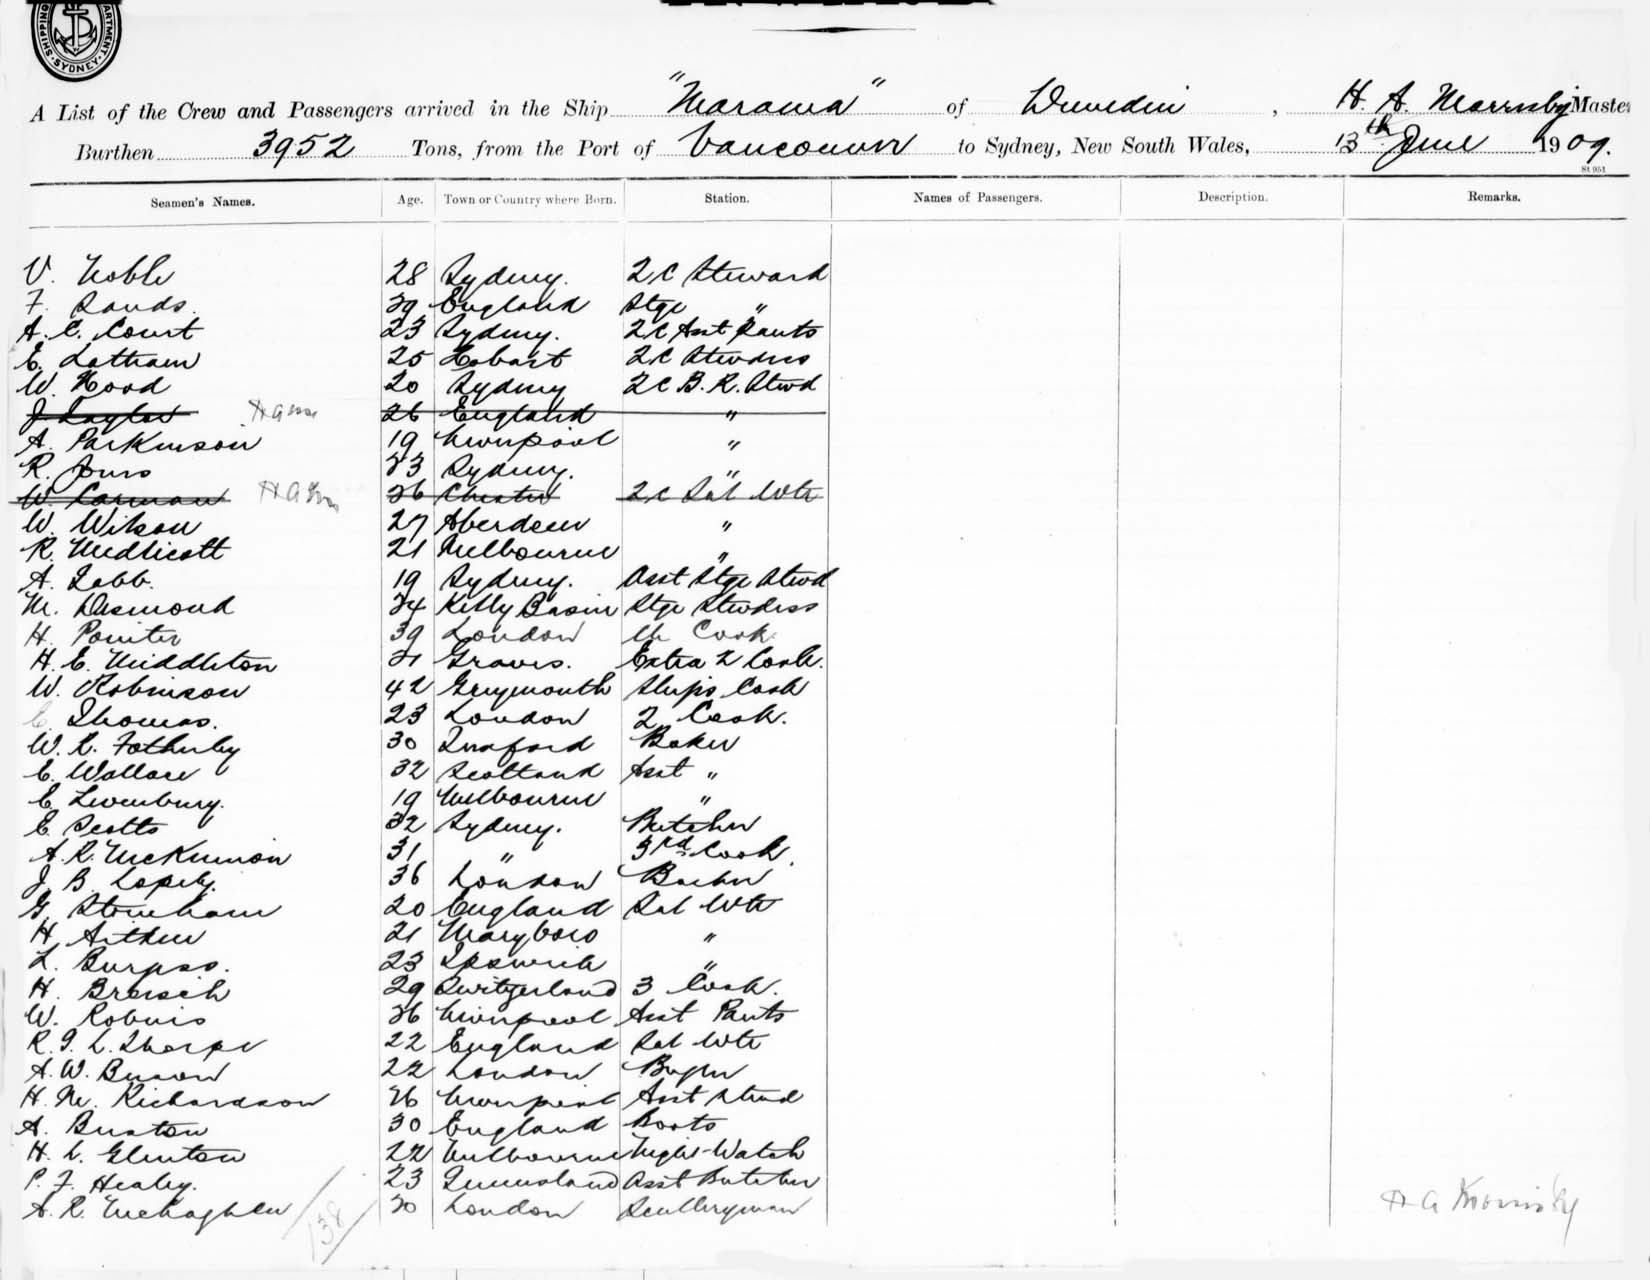 SHIPPING DEPARTMENT. SYDNEY.
A List of the Crew and Passengers arrived in the Ship "Marama" of Dunedin, H. A. Master
Burthen 3952 Tons, from the Port of Vancouver to Sydney, New South Wales, 13th June 1909.
St 951
Seamen's Names. Age. Town or Country where Born. Station. Names of Passengers. Description. Remarks.
V. Noble 28 Sydney. 2 C Steward
F. Sands. 39 England Stge "
A. C. Court 23 Sydney. 2 C Asst Pants
E. Latham 25 Hobart 2 C Stewdess
W. Hood 20 Sydney 2 C B. R. Stwd
J Taylor 26 England "
A. Parkinson 19 Liverpool "
R. Jones 23 Sydney. "
W. Carman 36 Chester 2 C Sal Wtr
W. Wilson 27 Aberdeen "
R. Medlicott 21 Melbourne "
A. Tabb. 19 Sydney. Asst Stge Stwd
M. Desmond 34 Kelly Basin Stge Stewdess
H. Pointer 39 London Ch Cook
H. E. Middleton 21 Extra 2 Cook.
W. Robinson 42 Greymouth Ships Cook
C. Thomas. 23 London 2 Cook.
W. E. Fotherby 30 Baker
E. Wallace 32 Scotland Asst "
E 19 Melbourne "
E. Scotts 32 Sydney. Butcher
A. R. McKinnon 31 " 3rd Cook.
J. B. 36 London
G. Stoneham 20 England Sal Wtr
H. Aitken 21 Maryboro "
L. Burgess. 23 Ipswich "
H. 29 Switzerland 3 Cook.
W. 36 Liverpool Asst Pants
R. I. L. Thorpe 22 England Sal Wtr
A. W. 22 London
H. M. Richardson 26 Liverpool Asst Stwd
A. Buxton 30 England Boots
H. L. Glinton 22 Melbourne Night-Watch
P. F. Healey. 23 Queensland Asst Butcher
A. R. 30 London Sculleryman
138